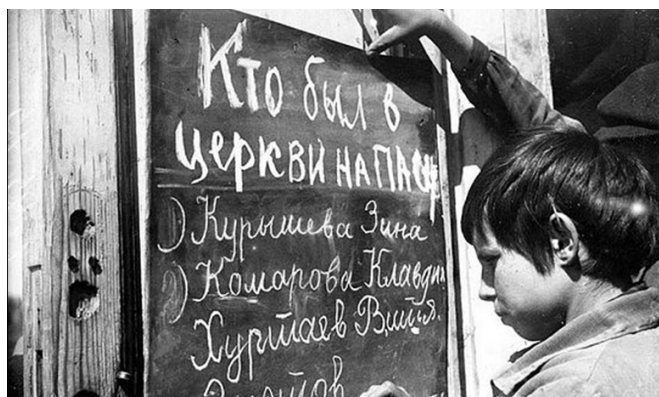 Кто был в
церкви на пасх
1) Курышева Зина
2) Комарова Клавди
Хуртаев Витя.